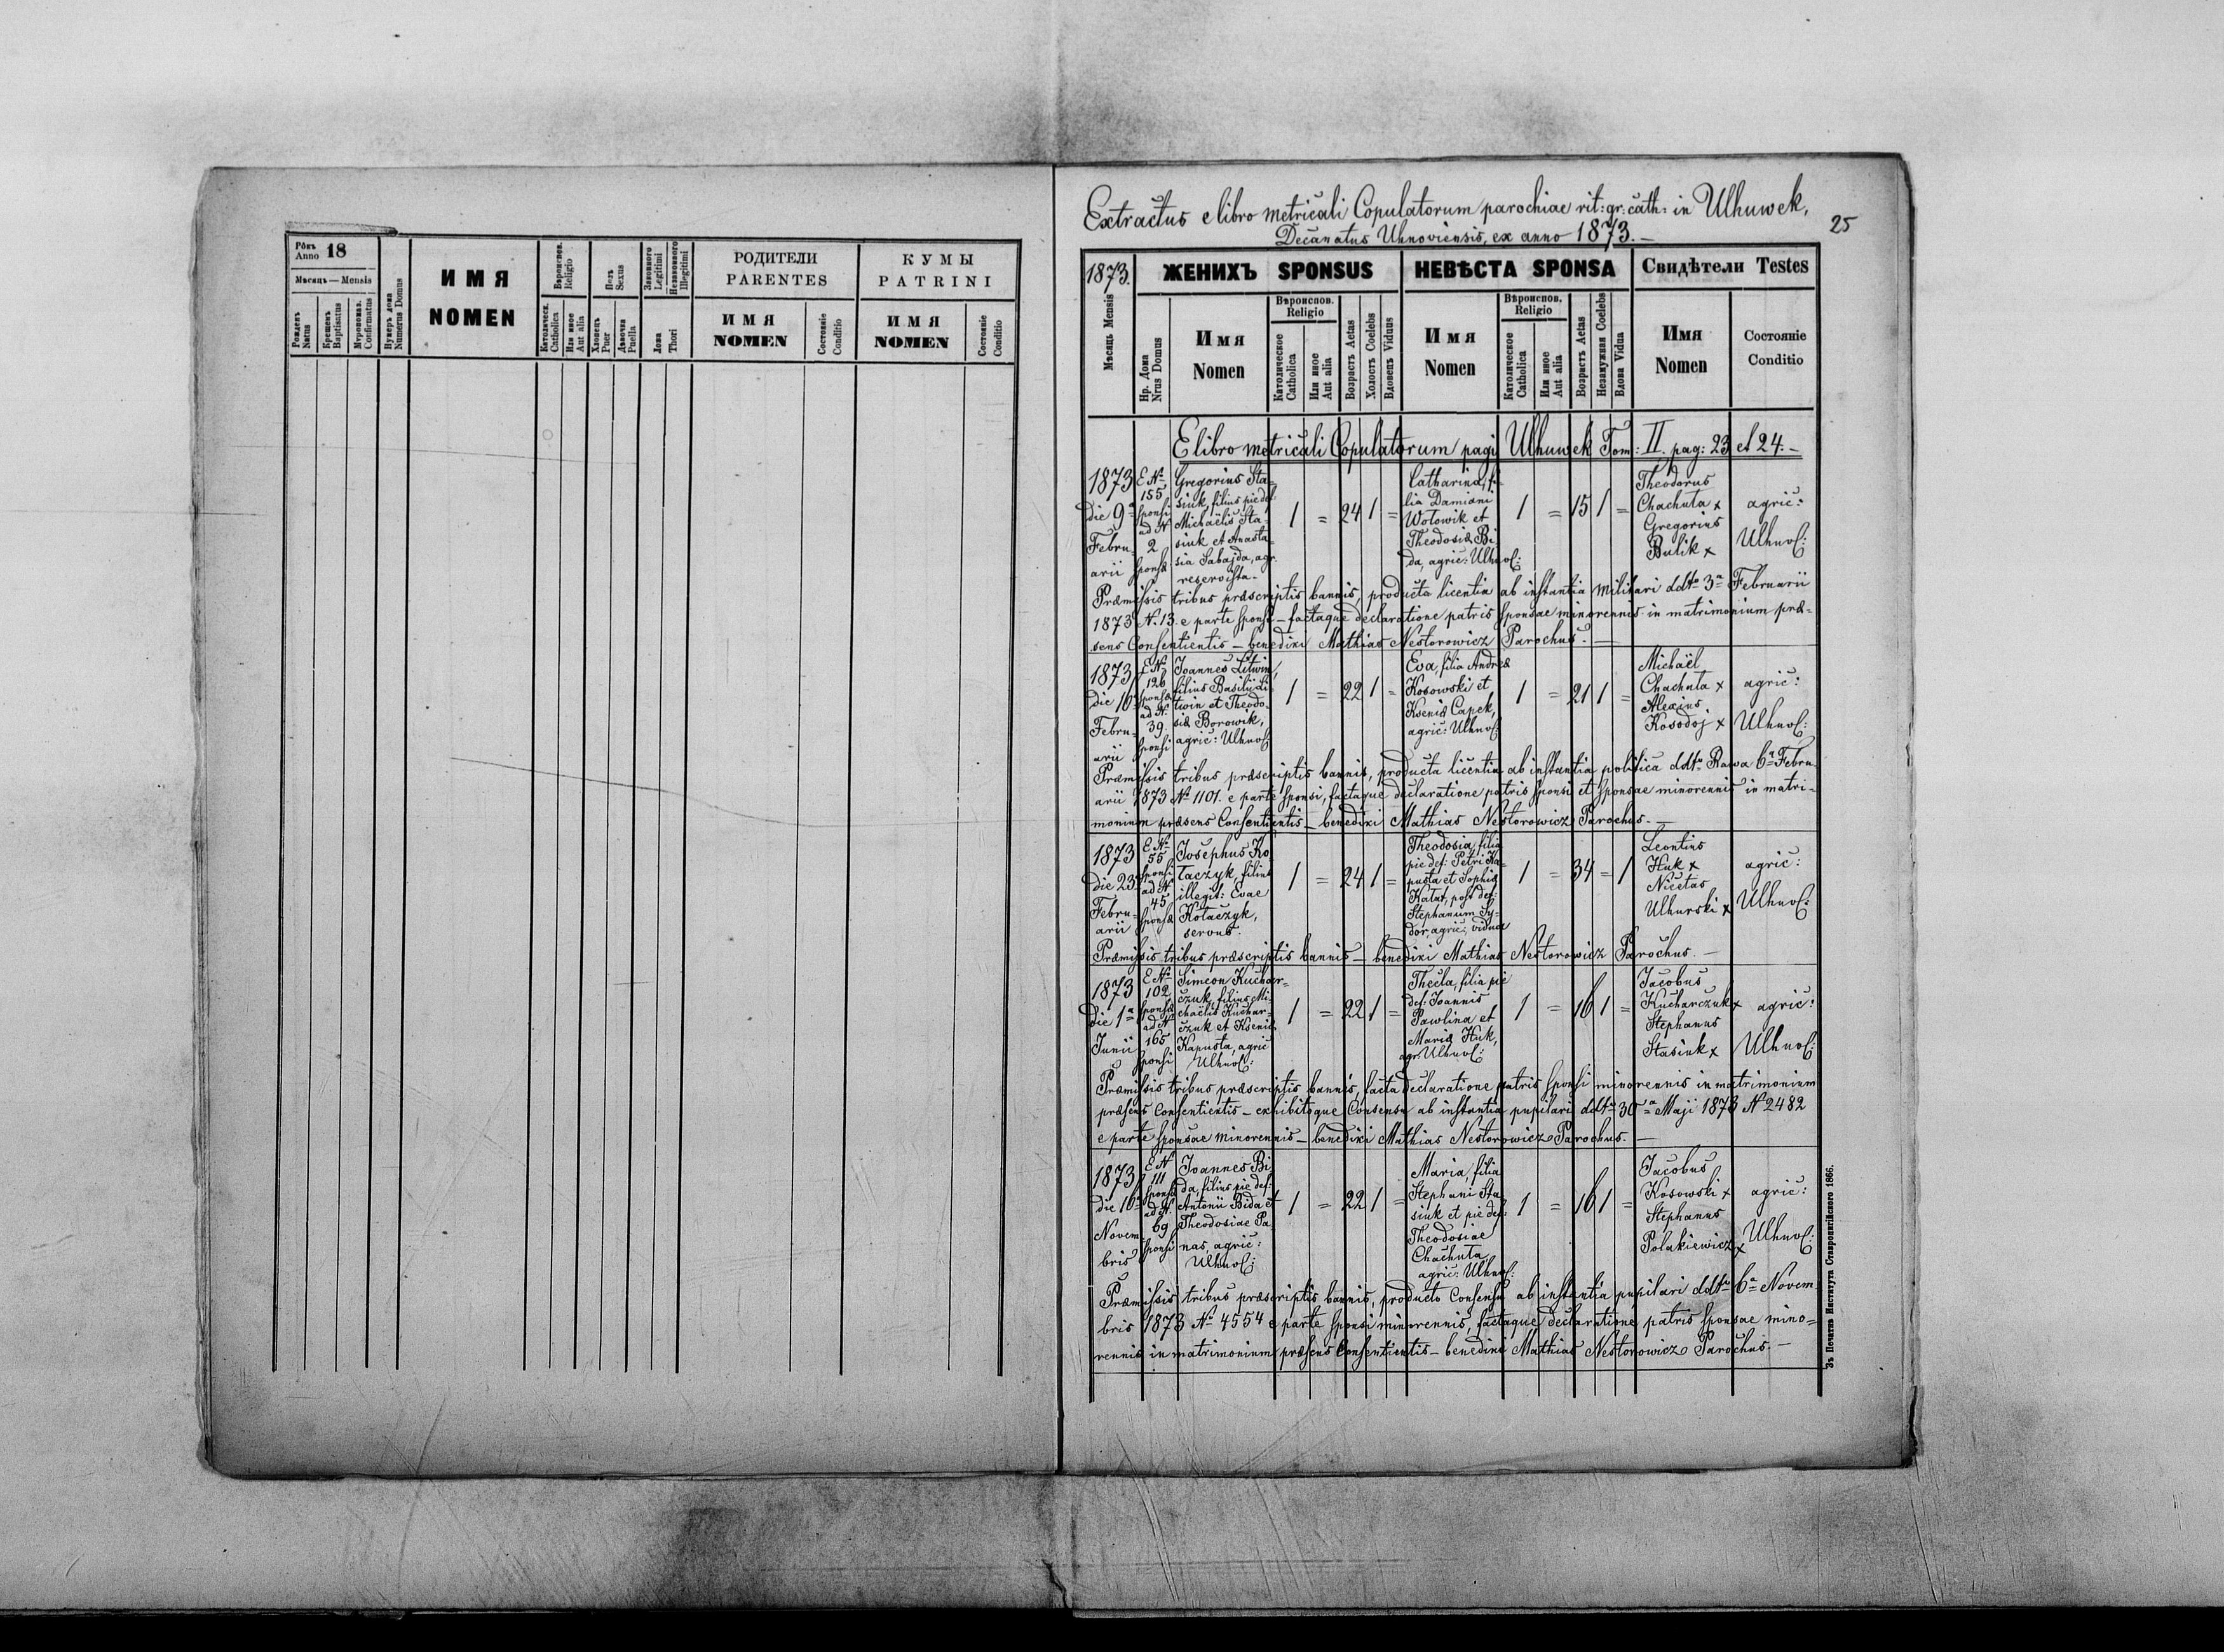 Рôкъ
Anno 18
Мѣсяцъ — Mensis
Рожденъ
Natus
Крещенъ
Baptisatus
Мѵропомаз.
Confirmatus
Нумеръ дома
Numerus Domus
ИМЯ
NOMEN
Вѣроиспов.
Religio
Католическ.
Catholica
Или иное
Aut alia
Полъ
Sexus
Хлопецъ
Puer
Дѣвочка
Puella
Законного
Legitimi
Незаконного
Illegitimi
Ложа
Thori
РОДИТЕЛИ
PARENTES
ИМЯ
NOMEN
Состояніе
Conditio
КУМЫ
PATRINI
ИМЯ
NOMEN
Состояніе
Conditio
Extractus e libro metricali Copulatorum parochiae rit: gr: cath: in Ulhuwek,
Decanatus Uhnoviensis, ex anno 1873. –
25
1873.
Мѣсяцъ Mensis
ЖЕНИХЪ SPONSUS
НЕВѢСТА SPONSA
Свидѣтели Testes
Нр. Дома
Nrus Domus
Имя
Nomen
Вѣроиспов.
Religio
Католическое
Catholica
Или иное
Aut alia
Возрастъ Aetas
Холостъ Coelebs
Вдовецъ Viduus
Имя
Nomen
Вѣроиспов.
Religio
Католическое
Catholica
Или иное
Aut alia
Возрастъ Aetas
Незамужная Coelebs
Вдова Vidua
Имя
Nomen
Состояніе
Conditio
E libro metricali Copulatorum pagi Ulhuwek Tom: II. pag: 23 et 24. –
1873
die 9a
Febru=
arii
E No
155
sponsi
ad N
2
sponsæ
Gregorius Sta=
siuk, filius pie def
Michaëlis Sta=
siuk et Anasta=
sia Sabajda, agr.
reservista.
1 = 24 1 =
Catharina, fi=
lia Damiani
Wołowik et
Theodosiæ Bi
da, agric: Ulhuv:
1 = 15 1 =
Theodorus
Chachuta x
Gregorius
Bulik x
agric:
Ulhuv:
Præmissis tribus præscriptis bannis, producta licentia ab instantia militari ddto 3a Februarii
1873 N. 13. e parte sponsi – factaque declaratione patris sponsae minorennis in matrimonium præ=
sens Consentientis – benedixi Mathias Nestorowicz Parochus. –
1873
die 16a
Febru=
arii
E No
126
sponsæ
ad N.
39.
sponsi
Joannes Litwin,
filius Basilii Li=
twin et Theodo=
siæ Borowik,
agric: Ulhuv:
1 = 22 1 =
Eva, filia Andreæ
Kosowski et
Kseniæ Capek,
agric: Ulhuv:
1 = 21 1 =
Michaël
Chachuta x
Alexius
Kosodoj x
agric:
Ulhuv:
Præmissis tribus præscriptis bannis, producta licentia ab instantia politica ddto Rawa 6a Febru
arii 1873 No 1101. e parte sponsi, factaque declaratione patris sponsi et sponsae minorennis in matri=
monium præsens Consentientis – benedixi Mathias Nestorowicz Parochus. –
1873
die 23a
Febru=
arii
E No
55
sponsi
ad N
45
sponsæ
Josephus Ko
łaczyk, filius
illegit: Evae
Kołaczyk,
servus.
1 = 24 1 =
Theodosia, filia
pie def: Petri Ka=
pusta et Sophiæ
Kałat, post def:
Stephanum Sy=
dor, agric., vidua
1 = 34 = 1
Leontius
Huk x
Nicetas
Ulhurski x
agric:
Ulhuv:
Præmissis tribus præscriptis bannis – benedixi Mathias Nestorowicz Parochus. –
1873
die 1a
Junii
E No
102
sponsæ
ad N
165
sponsi
Simeon Kuchar=
czuk, filius Mi=
chaelis Kuchar=
czuk et Kseniæ
Kapusta, agric
Ulhuv:
1 = 22 1 =
Thecla, filia pie
def: Joannis
Pawlina et
Mariæ Huk,
agr. Ulhuv:
1 = 16 1 =
Jacobus
Kucharczuk x
Stephanus
Stasiuk x
agric:
Ulhuv:
Præmissis tribus præscriptis bannis, facta declaratione patris sponsi minorennis in matrimonium
præsens Consentientis – exhibitoque Consensu ab instantia pupilari ddto 30a Maji 1873 No 2482
e parte sponsae minorennis – benedixi Mathias Nestorowicz Parochus. –
1873
die 16a
Novem
bris
E N
111
sponsæ
ad N.
69
sponsi
Joannes Bi
da, filius pie def:
Antonii Bida et
Theodosiae Pa
nas, agric:
Ulhuv:
1 = 22 1 =
Maria, filia
Stephani Sta
siuk et pie def:
Theodosiae
Chachuta,
agric: Ulhuv:
1 = 16 1 =
Jacobus
Kosowski x
Stephanus
Polakiewicz x
agric:
Ulhuv:
Præmissis tribus præscriptis bannis, producto Consensu ab instantia pupilari ddto 6a Novem
bris 1873 No 4554 e parte sponsi minorennis, factaque declaratione patris sponsae mino=
rennis in matrimonium præsens Consentientis – benedixi Mathias Nestorowicz Parochus. –
Зъ Печатнѣ Института Ставропигійского 1866.